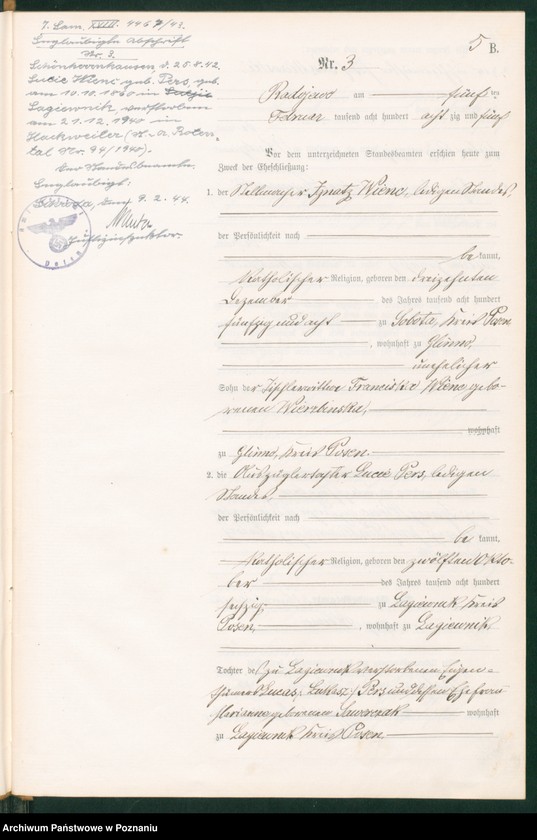 5 B.
Nr. 3
Radojewo am fünften
Februar tausend acht hundert acht zig und fünf
Vor dem unterzeichneten Standesbeamten erschien heute zum
Zweck der Eheschließung:
1. der Stellmacher Ignatz Wienc, ledigen Standes,
der Persönlichkeit nach
be kannt,
katholischer Religion, geboren den dreizehnten
Dezember des Jahres tausend acht hundert
fünfzig und acht zu Sobota, Kreis Posen
, wohnhaft zu Glinno,
unehelicher
Sohn der Tischlerwittwe Franciska Wienc gebo-
renen Wierzbinska,
wohnhaft
zu Glinno, Kreis Posen.
2. die Auszüglertochter Lucie Pers, ledigen
Standes,
der Persönlichkeit nach
be kannt,
katholischer Religion, geboren den zwölften Okto-
ber des Jahres tausend acht hundert
sechzig, zu Lagiewnik Kreis
Posen, , wohnhaft zu Lagiewnik
Tochter des zu Lagiewnik verstorbenen Eigen-
thümers Lucas, Lukasz, Pers und dessen Ehefrau
Marianna geborenen wohnhaft
zu Lagiewnik Kreis Posen
7. Lam. XVIII. 4467/43.
Beglaubigte Abschrift
Nr. 3.
Schönherrnhausen d. 25.8.42.
Lucie Wienc geb. Pers, geb.
am 10.10.1860 in
Lagiewnik verstorben
am 21.12.1940 in
Hackweiler (St. A. Rosen-
tal Nr. 94/1940).
Der Standesbeamte.
Beglaubigt:
den 9.2.44.
Justizinspektor.
Archiwum Państwowe w Poznaniu